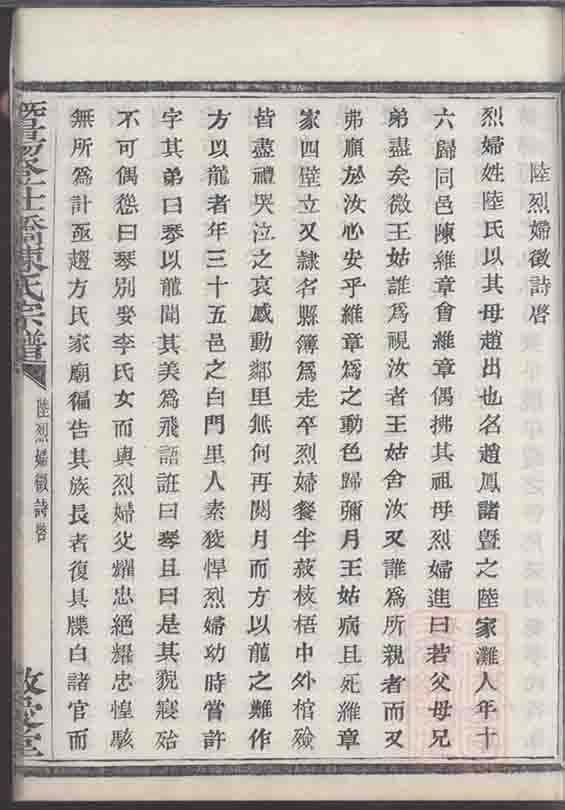 陸烈婦徵詩啓
烈婦姓陸氏以其母趙出也名趙鳳諸暨之陸家灘人年十
六歸同邑陳維章會維章偶拂其祖母烈婦進曰若父母兄
弟盡矣微王姑誰爲視汝者王姑舍汝又誰爲所親者而又
弗順於汝心安乎維章爲之動色歸彌月王姑病且死維章
家四壁立又隸名縣簿爲走卒烈婦餐半菽枝梧中外棺殮
皆盡禮哭泣之哀感動鄰里無何再閱月而方以龍之難作
方以龍者年三十五邑之白門里人素狡悍烈婦幼時嘗許
字其弟曰琴以龍聞其美爲飛語誑曰琴且曰是其貌寢殆
不可偶慫曰琴別娶李氏女而與烈婦父耀忠絕耀忠惶駭
無所爲計亟趨方氏家廟徧告其族長者復具牒白諸官而
陳氏宗譜
陸烈婦徵詩啓